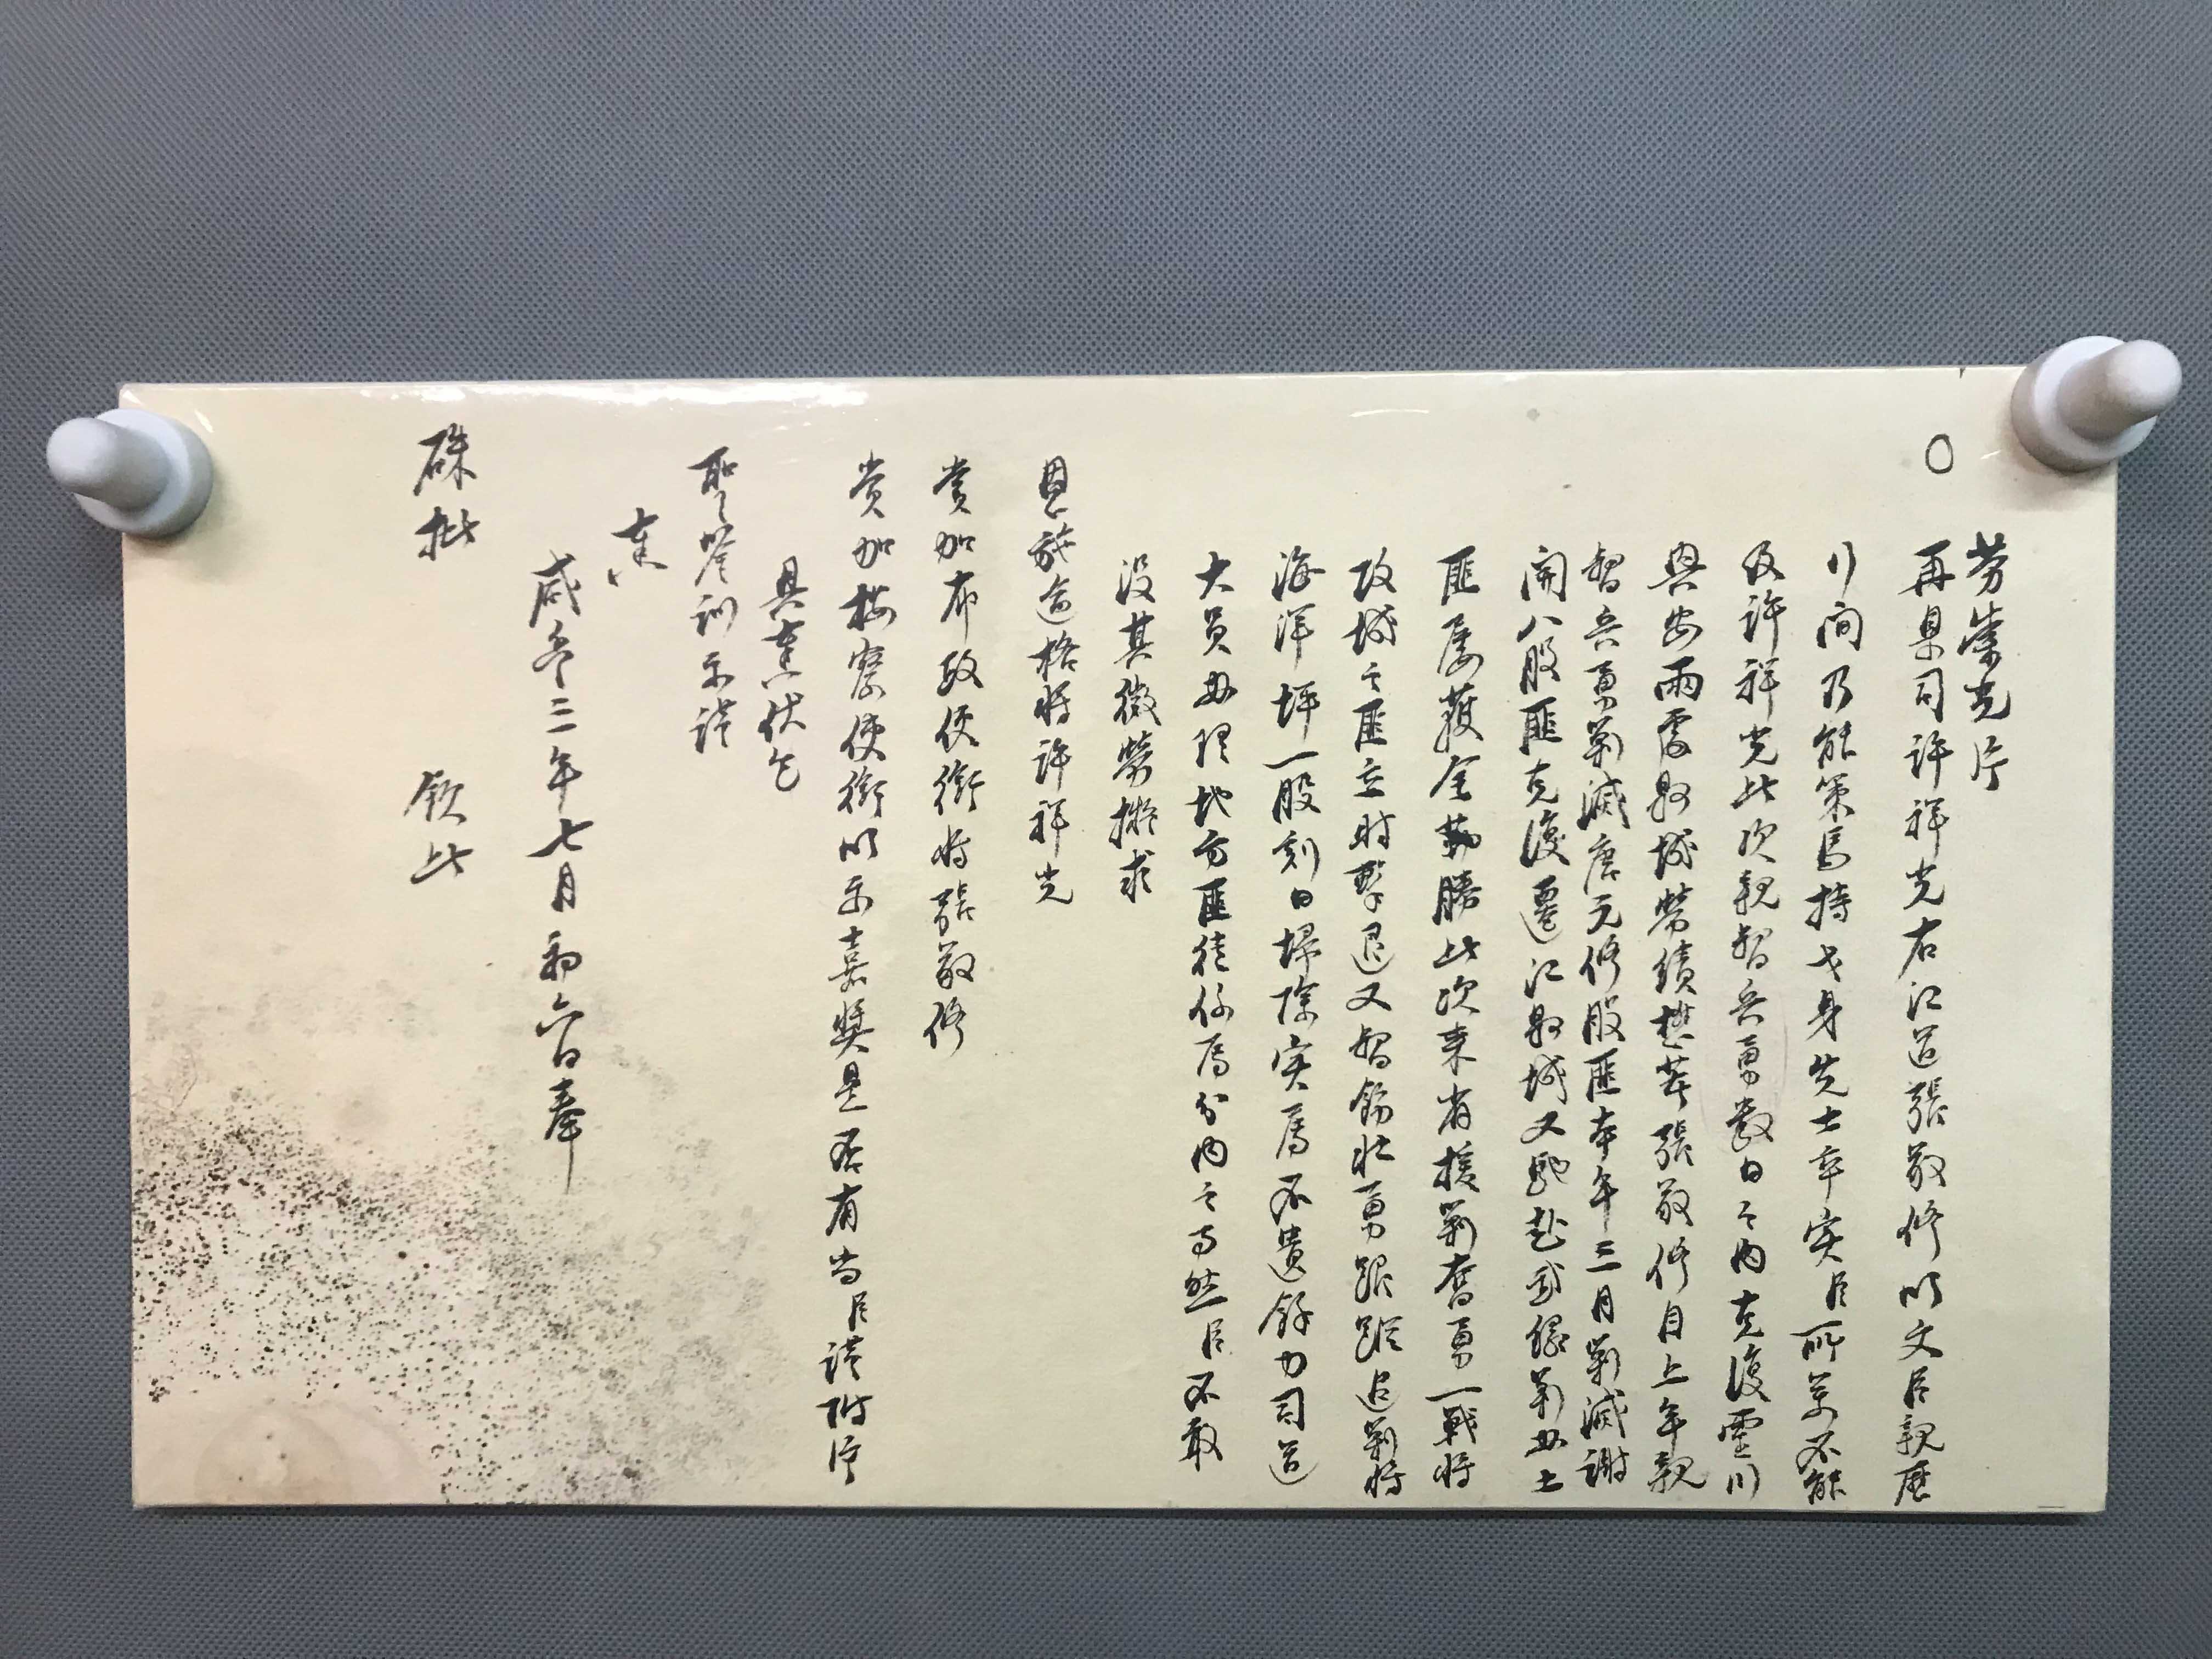 勞崇光片
再臬司許祥光右江道張敬修以文臣親歷
行間乃能策馬持戈身先士卒实臣所萬不能
及許祥光此次親督兵勇數日之內克復靈川
興安兩處縣城勞績懋著張敬修自上年親
督兵勇剿滅唐元修股匪本年三月剿滅謝
開八股匪克復遷江縣城又馳赴武緣剿办土
匪屡獲全勝此次来省援剿奮勇一戰將
攻城之匪立時擊退又督飭壮勇跟蹤追剿將
海洋坪一股刻日掃除实屬不遺餘力司道
大員办理地方匪徒係屬分內之事然臣不敢
没其微勞擬求
恩施逾格将許祥光
賞加布政使銜将張敬修
賞加按察使銜以示嘉奬是否有当臣謹附片
具奏伏乞
聖鉴訓示謹
奏
咸丰三年七月初六日奉
硃批　欽此